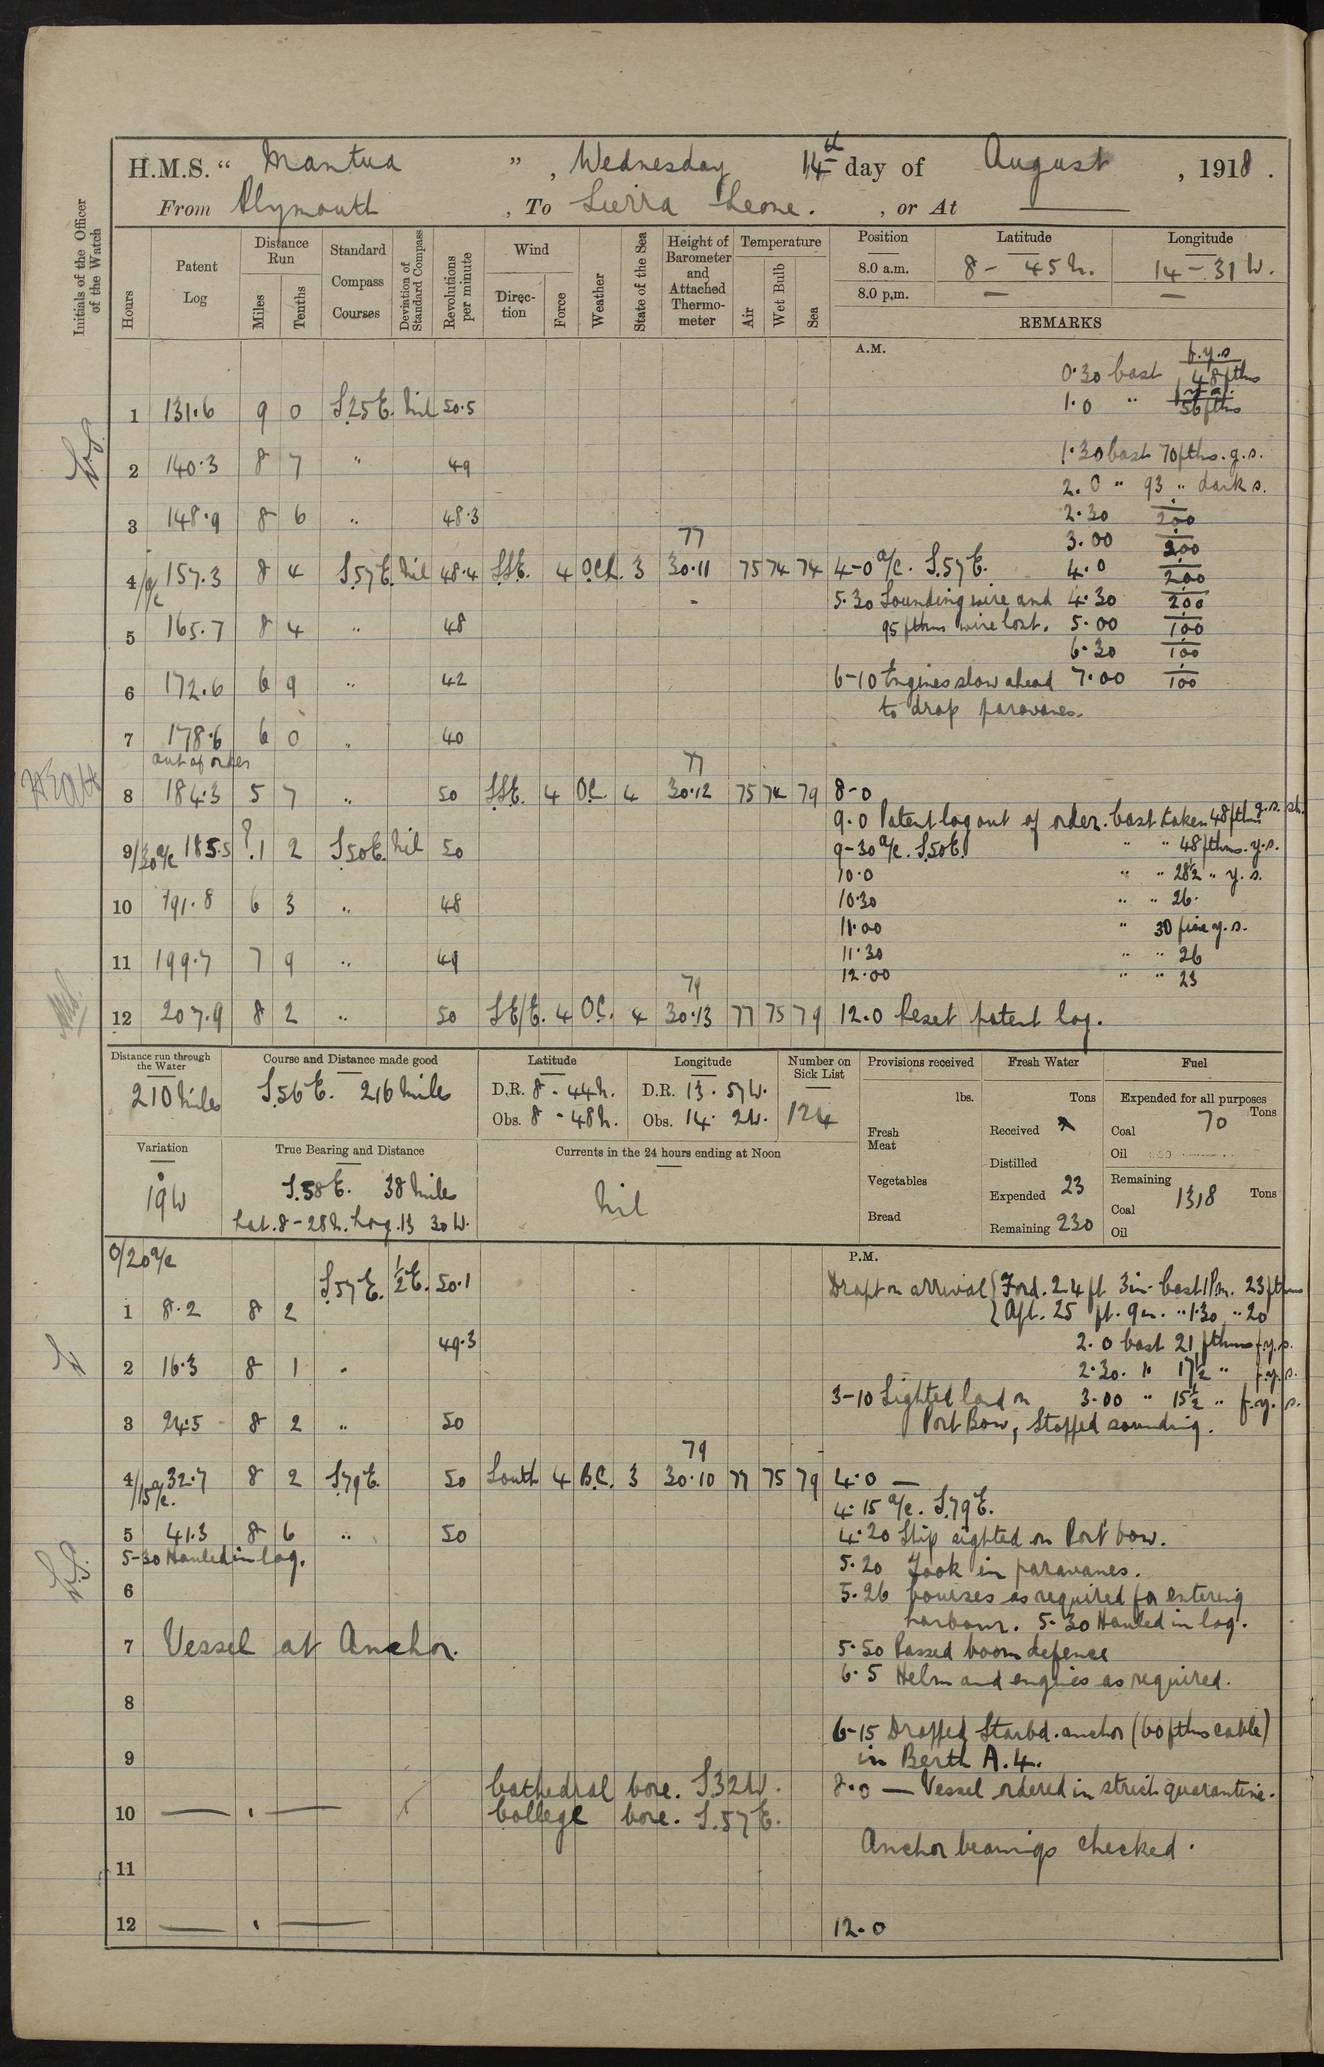 H.M.S. “ Mantua ” , Wednesday 14th day of August , 1918 .
From Plymouth , To Sierra Leone. , or At
Initials of the Officer of the Watch
Hours
Patent Log
Distance Run
Miles
Tenths
Standard Compass Courses
Deviation of Standard Compass
Revolutions per minute
Wind
Direc-tion
Force
Weather
State of the Sea
Height of Barometer and Attached Thermo-meter
Temperature
Air
Wet Bulb
Sea
Position Latitude Longitude
8.0 a.m. 8 - 45 N. 14 - 31 W.
8.0 p.m. — —
REMARKS
A.M.
f.y.s
0.30 Cast 48 fths
1 131.6 9 0 S.25E. Nil 50.5
1.0 " 56 fths
2 140.3 8 7 " 49
1.30 Cast 70 fths. g.s.
2.0 " 93 " dark s.
3 148.9 8 6 " 48.3
2.30 200
77
3.00 200
4/a/c 157.3 8 4 S.57E. Nil 48.4 SSE. 4 OCL. 3 30.11 75 74 74 4-0 a/c. S.57E. 4.0 200
5.30 Sounding wire and 4.30 200
5 165.7 8 4 " 48
95 fthms wire lost. 5.00 100
6.30 100
6 172.6 6 9 " 42 6-10 Engines slow ahead 7.00 100
to drop paravanes.
7 178.6 6 0 " 40
out of order
77
8 184.3 5 7 " 50 SSE. 4 OC. 4 30.12 75 74 79 8-0
9.0 Patent log out of order. Cast taken 48 fthms g.s. sh.
9/30 a/c 185.5 ?.1 2 S.50E. Nil 50 9-30 a/c. S.50E. " " 48 fthms. y.s.
10.0 " " 28½ " y.s.
10 191.8 6 3 " 48 10.30 " " 26.
11.00 " 30 fine y.s.
11 199.7 7 9 " 49 11.30 " " 26
12.00 " " 23
79
12 207.9 8 2 " 50 SE/E. 4 OC. 4 30.13 77 75 79 12.0 Reset patent log.
Distance run through the Water
210 Miles
Course and Distance made good
S.56E. 216 Miles
Latitude
D.R. 8 - 44 N.
Obs. 8 - 48 N.
Longitude
D.R. 13 . 57 W.
Obs. 14 . 2 W.
Number on Sick List
124
Provisions received
lbs.
Fresh Meat
Vegetables
Bread
Fresh Water
Tons
Received
Distilled
Expended 23
Remaining 230
Fuel
Expended for all purposes
Tons
Coal 70
Oil
Remaining
Coal 1318 Tons
Oil
Variation
19 W
True Bearing and Distance
S.58E. 38 Miles
Lat. 8 - 28 N. Long. 13 30 W.
Currents in the 24 hours ending at Noon
Nil
0/20 a/c
P.M.
S.57E. ½E. 50.1
Draft on arrival { Ford. 24 ft 3 in. Cast 1 P.m. 23 fthms
1 8.2 8 2
{ Aft. 25 ft. 9 in. " 1.30 " 20
49.3
2.0 Cast 21 fthms f.y.s.
2 16.3 8 1 "
2.30. " 17½ " f.y.s.
3-10 Sighted land on 3.00 " 15½ " f.y.s.
3 24.5 8 2 " 50
Port Bow, Stopped sounding.
79
4/15 a/c. 32.7 8 2 S.79E. 50 South 4 B.C. 3 30.10 77 75 79 4.0 —
4.15 a/c. S.79E.
5 41.3 8 6 " 50 4.20 Ship sighted on Port bow.
5-30 Hauled in log.
5.20 Took in paravanes.
6
5.26 Courses as required for entering
harbour. 5-30 Hauled in log.
7 Vessel at Anchor.
5.50 Passed boom defence
6.5 Helm and engines as required.
8
6-15 Dropped Starbd. anchor (60 fthms cable)
9
in Berth A.4.
Cathedral bore. S.32W.
8.0 — Vessel ordered in strict quarantine.
10
College bore. S.57E.
Anchor bearings checked.
11
12 12.0